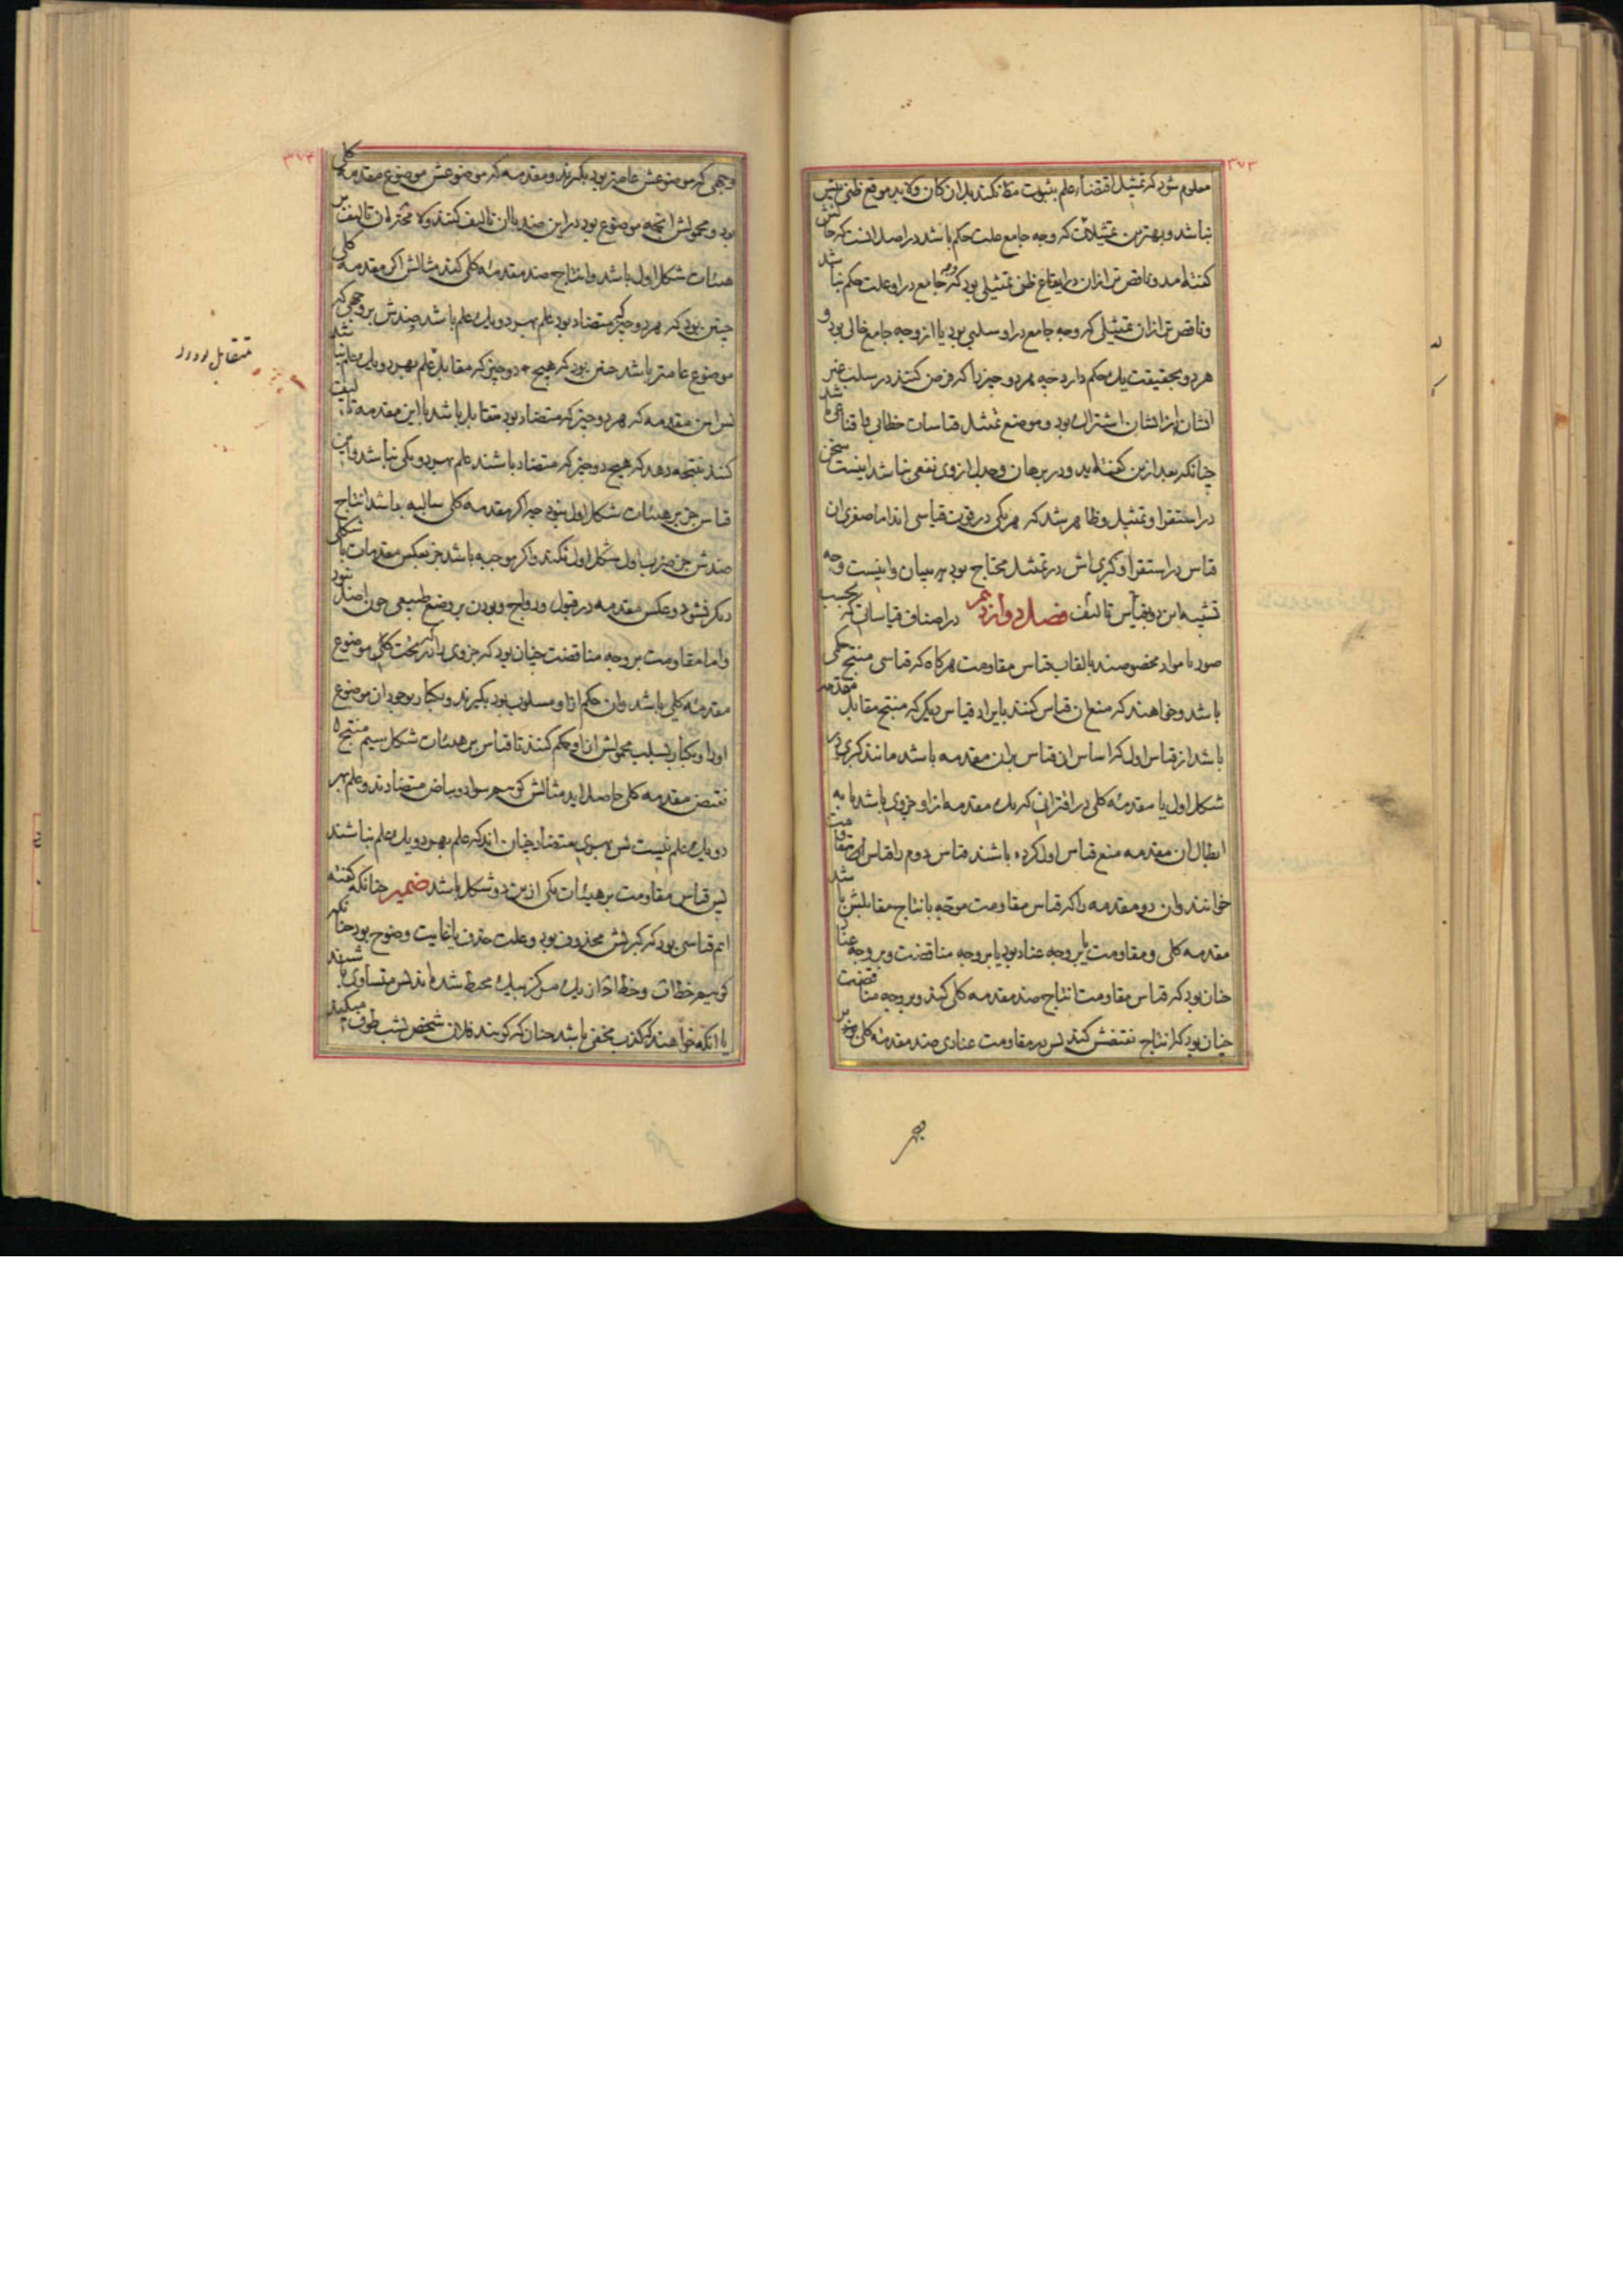 ۳۷۳
معلوم شود که تمثیل اقتضاء علم بثبوت مظا نکند بل ان کان ولابد موقع ظنی بیش
نباشد و بهترین تمثیلات که وجه جامع علت حکم باشد در اصل انست که حالش
کفته امد و ناقص تر ازان در ایقاع ظن تمثیلی بود که وجه جامع در او علت حکم نباشد
و ناقص تر ازان تمثیلی که وجه جامع در او سلبی بود یا از وجه جامع خالی بود و
هر دو بحقیقت یک حکم دارد چه هر دو چیز را که فرض کنند در سلب غیر
ایشان از ایشان اشتراک بود و موضع تمثیل قیاسات خطابی یا قناعی باشد
چنانکه بعد ازین کفته اید و در برهان و جدل ازوی نفعی نباشد اینست سخن
در استقرا و تمثیل و ظاهر شد که هر یکی در قوت قیاسی اند اما صغری ان
قیاس در استقرا و کبری اش در تمثیل محتاج بود به بیان و اینست وجه
تشبیه این دو بقیاس تالیف فصل دوازدهم در اصناف قیاساتی که بحسب
صور یا مواد مخصوصند بالقاب قیاس مقاومت هرکاه که قیاسی منتج حکمی
باشد و خواهند که منع ان قیاس کنند بایراد قیاس دیکر که منتج مقابل مقدمه
باشد از قیاس اول که اساس ان قیاس بران مقدمه باشد مانند کبری در
شکل اول یا مقدمهٔ کلی در اقترانی که یک مقدمه از او جزوی باشد تا به
ابطال ان مقدمه منع قیاس اول کرده باشند قیاس دوم را قیاس مقاومت
خوانند و ان دو مقدمه را که قیاس مقاومت موجه بانتاج مقابلش باشد
مقدمه کلی و مقاومت یا بر وجه عناد بود یا بر وجه مناقضت و بر وجه عناد
چنان بود که قیاس مقاومت انتاج ضد مقدمه کلی کند و بر وجه مناقضت
چنان بود که انتاج نقیضش کند پس در مقاومت عنادی ضد مقدمهٔ کلی بر
۳۷۴
وجهی که موضوعش عامتر بود بکیرند و مقدمه که موضوعش موضوع مقدمه کلی
بود و محمولش انچه موضوع بود در این ضد با ان تالیف کنند و لا محاله ان تالیف بر
هیئات شکل اول باشد و انتاج ضد مقدمهٔ کلی کند مثالش اکر مقدمه کلی
چنین بود که هر دو چیز که متضاد بود علم بهر دو یک علم باشد ضدش بر وجهی که
موضوع عامتر باشد چنین بود که هیچ دو چیز که مقابل علم بهر دو یک علم نباشد
پس این مقدمه که هر دو چیز که متضاد بود متقابل باشد با این مقدمه تالیف
کنند نتیجه دهد که هیچ دو چیز که متضاد باشند علم بهر دو یکی نباشد و این
قیاس جز بر هیئات شکل اول نبود چه اکر مقدمه کلی سالبه باشد انتاج
ضدش جز ضرب اول شکل اول نکند و اکر موجبه باشد جز بعکس مقدمات با شکلی
دیکر نشود و عکس مقدمه در قبول و رواج و بودن بر وضع طبیعی چون اصل نبود
و اما مقاومت بر وجه مناقضت چنان بود که جزوی را که تحت کلی موضوع
مقدمهٔ کلی باشد و ان حکم از او مسلوب بود بکیرند و یکبار بوجود ان موضوع
او را و یکبار بسلب محمولش از او حکم کنند تا قیاس بر هیئات شکل سیم منتج
نقیض مقدمه کلی حاصل اید مثالش کوییم سواد و بیاض متضادند و علم بهر
دو یک علم نیست پس بهری متضاد چنان اند که علم بهر دو یک علم نباشند
پس قیاس مقاومت بر هیئات یکی ازین دو شکل باشد ضمیر چنانکه کفته
ایم قیاسی بود که کبریش محذوف بود و علت حذف یا غایت وضوح بود چنانکه
کوییم خطات و خط ا از یک مرکز بیک محیط شده اند پس متساوی باشند
یا انکه خواهند که کذب مخفی باشد چنان که کویند فلان شخص بشب طوف میکند
متقابل بودند